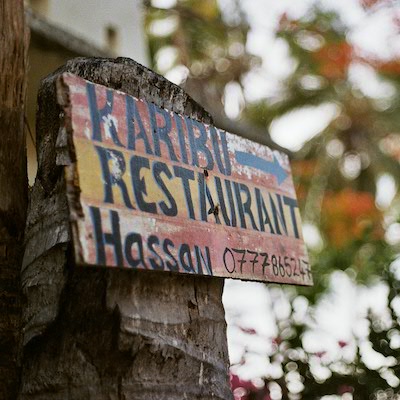 KARIBU
RESTAURANT
Hassan 0777865247